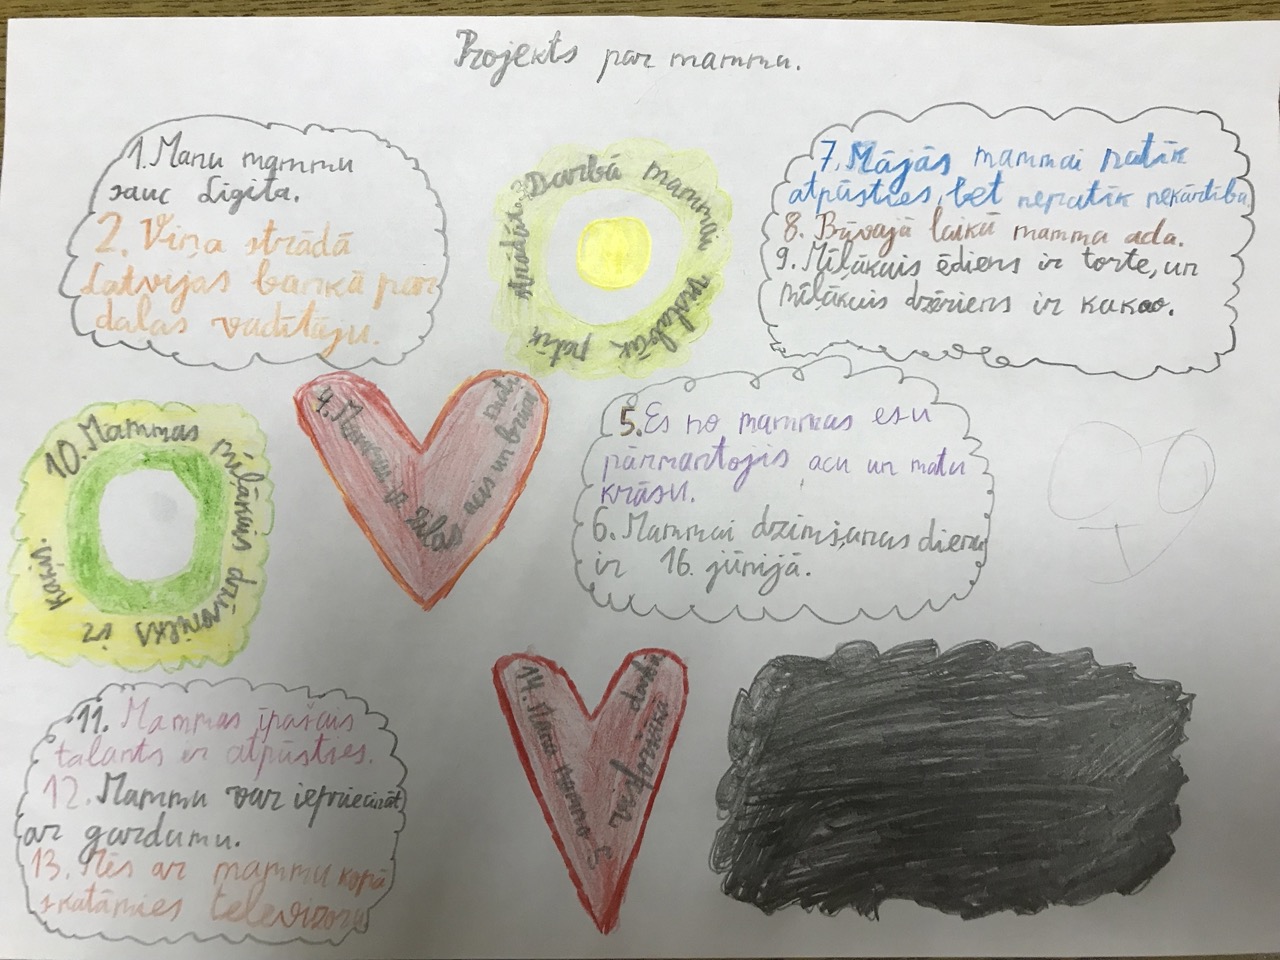 Projekts par mammu.
1. Manu mammu
sauc Ligita.
2. Viņa strādā
Latvijas bankā par
daļas vadītāju.
3. Darbā mammai vislabāk patīk strādāt.
7. Mājās mammai patīk
atpūsties, bet nepatīk nekārtība
8. Brīvajā laikā mamma ada.
9. Mīļākais ēdiens ir torte, un
mīļākais dzēriens ir kakao.
10. Mammas mīļākais dzīvnieks ir kaķis.
4. Mammai ir zilas acis un brūni mati.
5. Es no mammas esu
pārmantojis acu un matu
krāsu.
6. Mammai dzimšanas diena
ir 16. jūnijā.
11. Mammas īpašais
talants ir atpūsties.
12. Mammu var iepriecināt
ar gardumu.
13. Mēs ar mammu kopā
skatāmies televizoru
14. Mana mamma ir vislabākā